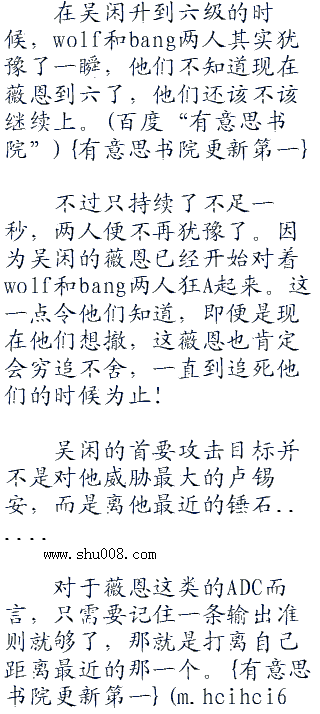 在吴闲升到六级的时
候，wolf和bang两人其实犹
豫了一瞬，他们不知道现在
薇恩到六了，他们还该不该
继续上。(百度“有意思书
院”){有意思书院更新第一}
不过只持续了不足一
秒，两人便不再犹豫了。因
为吴闲的薇恩已经开始对着
wolf和bang两人狂A起来。这
一点令他们知道，即便是现
在他们想撤，这薇恩也肯定
会穷追不舍，一直到追死他
们的时候为止！
吴闲的首要攻击目标并
不是对他威胁最大的卢锡
安，而是离他最近的锤石..
....
www.shu008.com
对于薇恩这类的ADC而
言，只需要记住一条输出准
则就够了，那就是打离自己
距离最近的那一个。{有意思
书院更新第一}(m.hcihci6